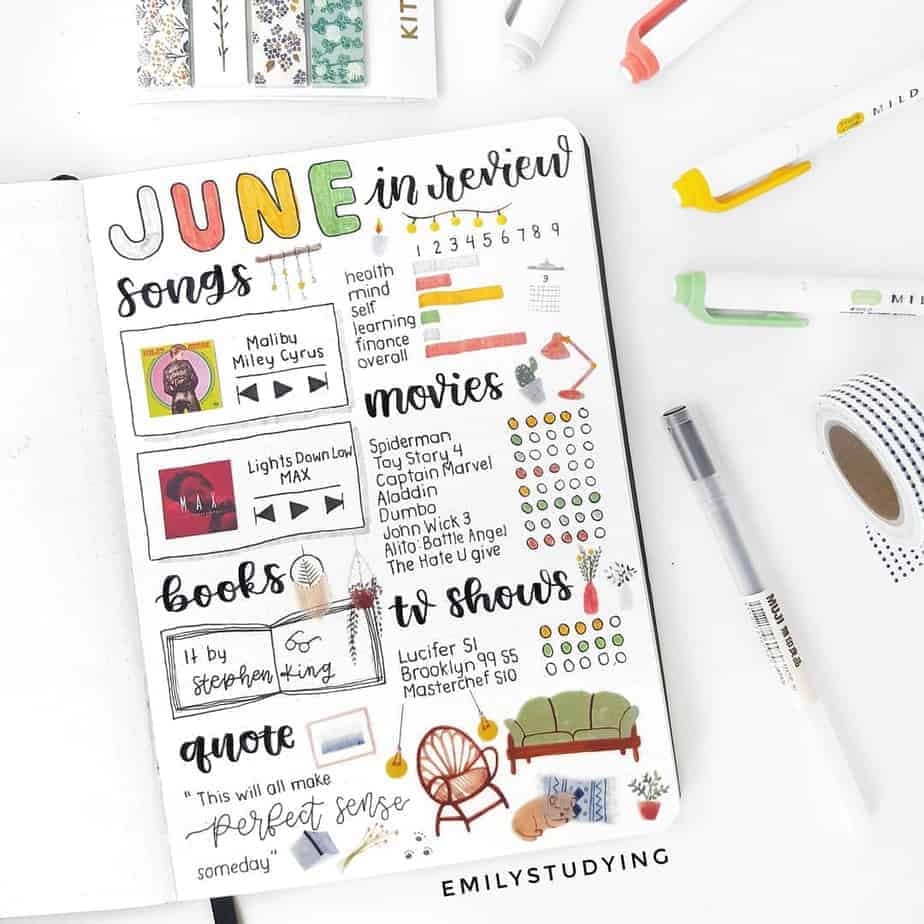 KIT
MILD
MIL
JUNE in review
songs
Maliby
Miley Cyrus
Lights Down Low
MAX
MAX
books
It by
stephen king
quote
"This will all make
perfect sense
someday"
1 2 3 4 5 6 7 8 9
health
mind
self
learning
finance
overall
9
movies
Spiderman
Toy Story 4
Captain Marvel
Aladdin
Dumbo
John Wick 3
Alito: Battle Angel
The Hate U give
tv shows
Lucifer S1
Brooklyn 99 S5
Masterchef S10
MUJI 無印良品
EMILYSTUDYING